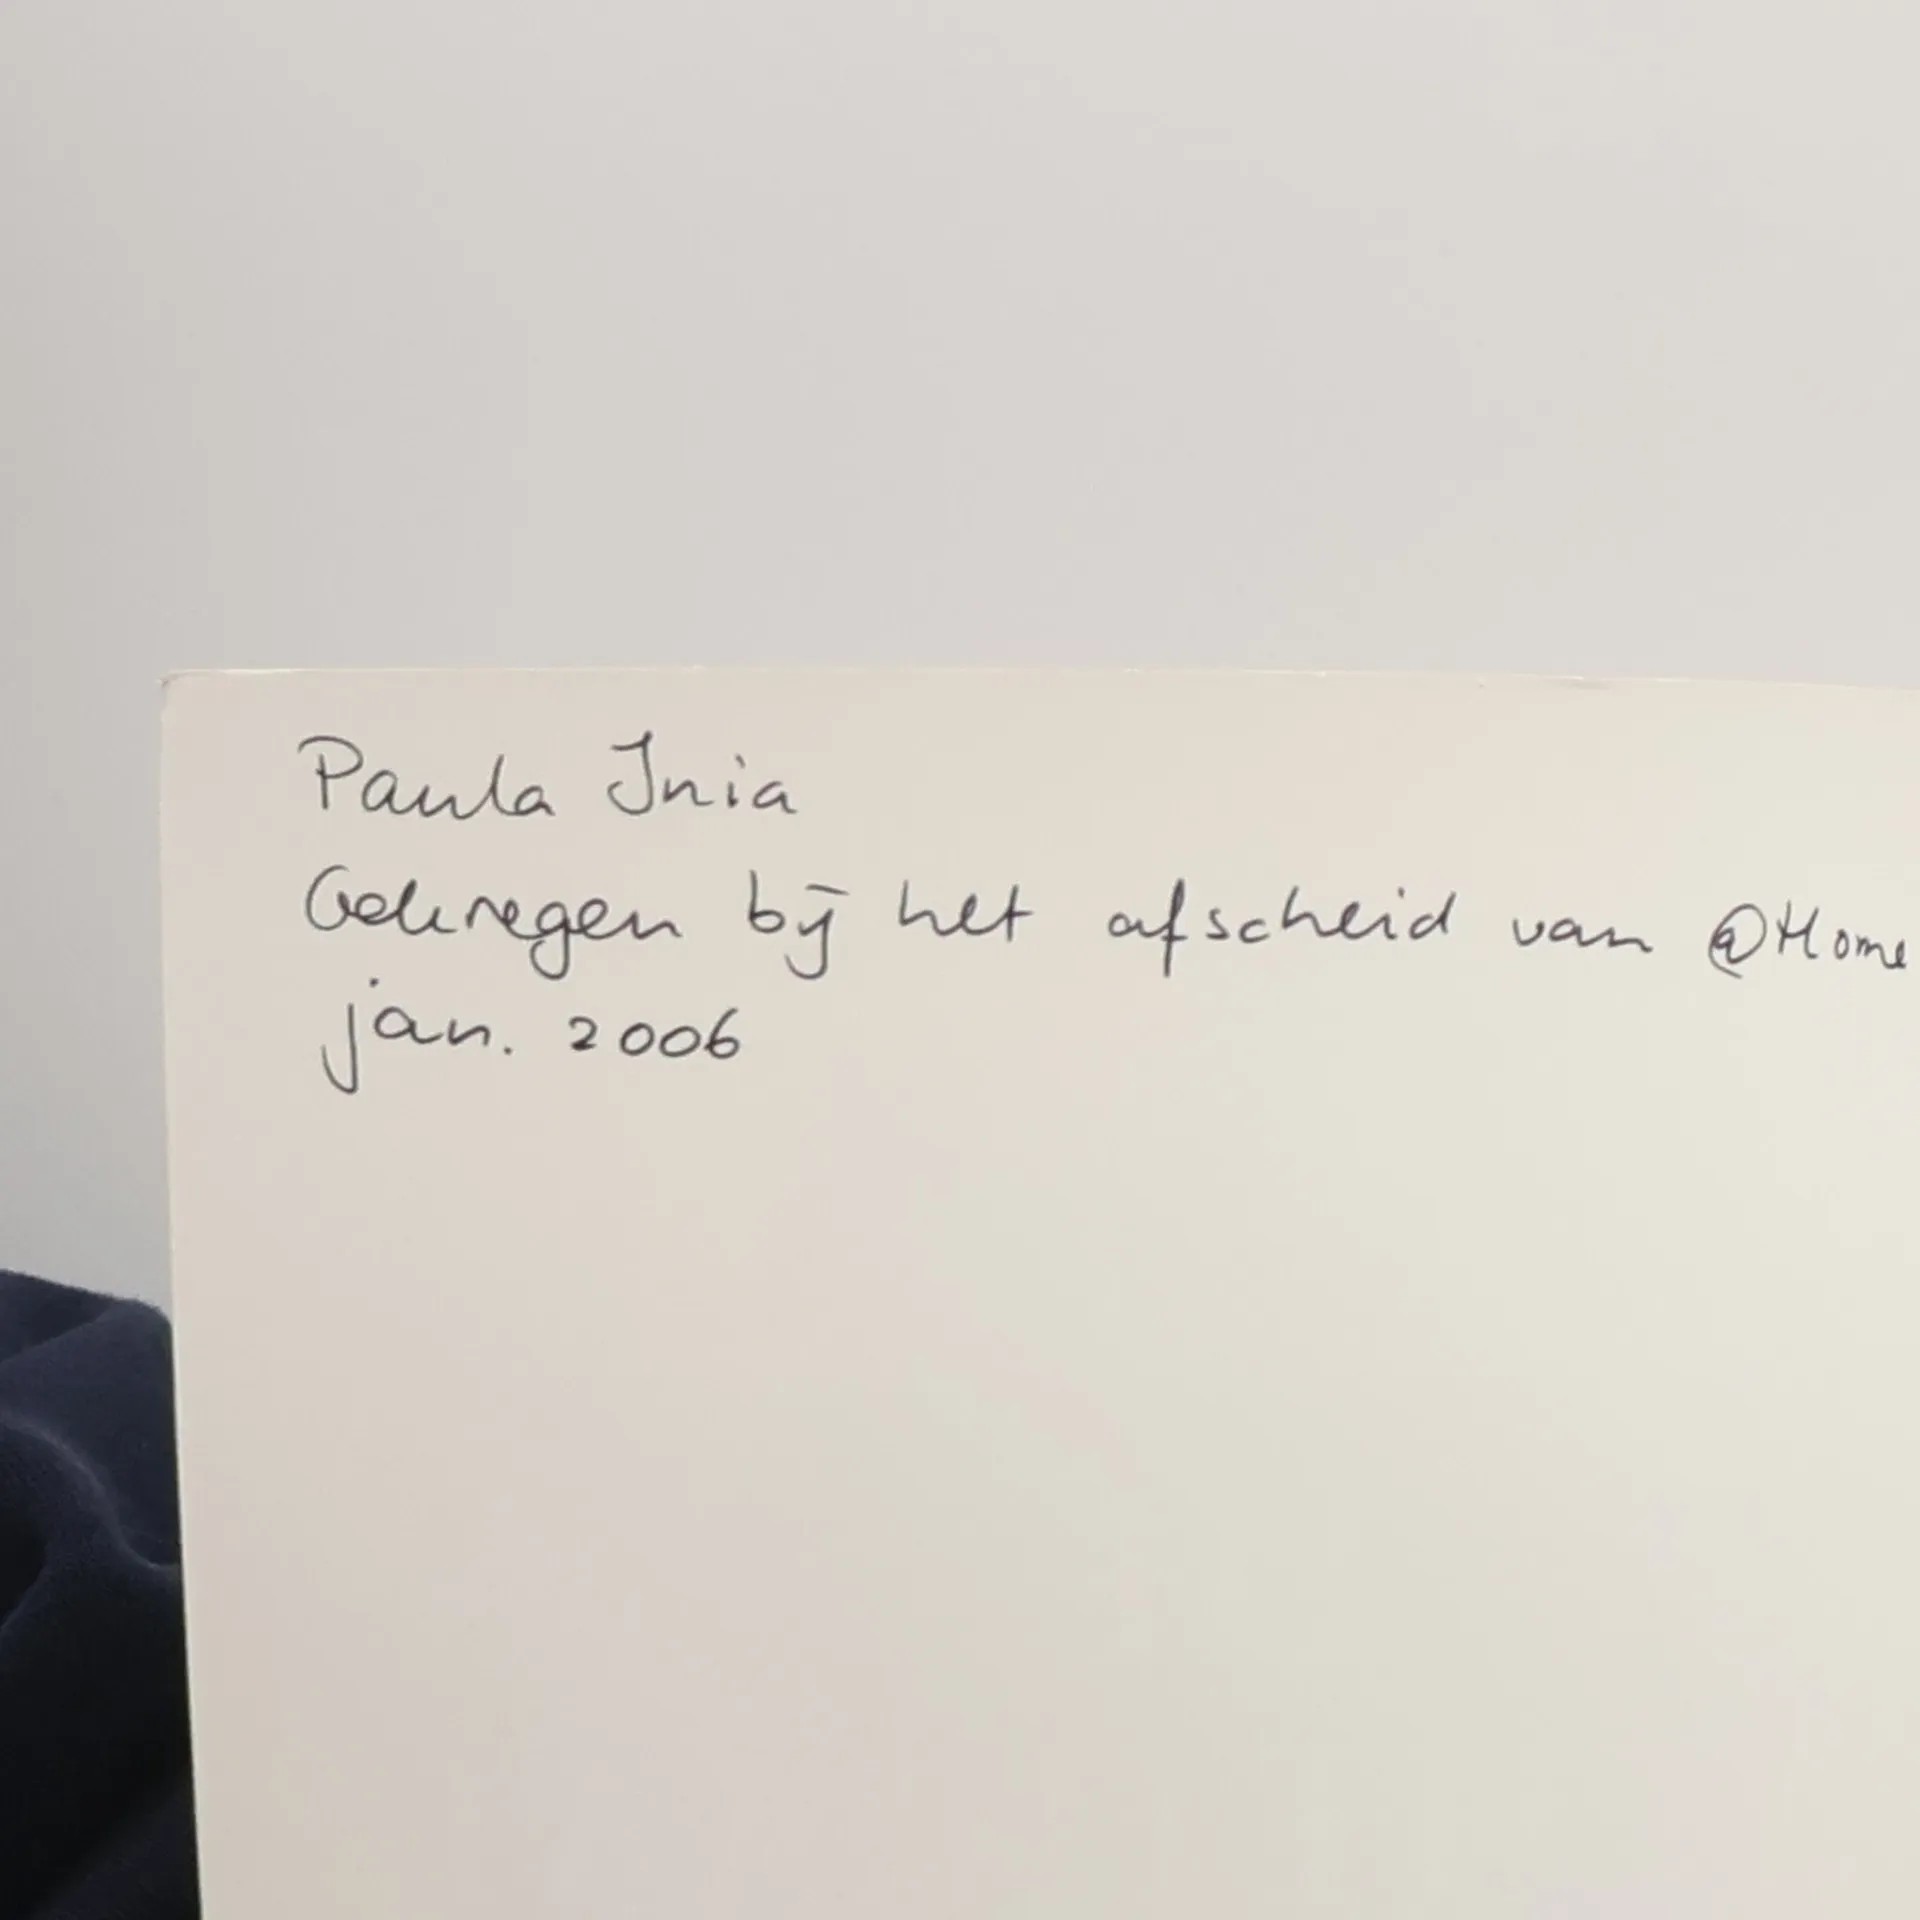 Paula Inia
Gekregen bij het afscheid van @Home
jan. 2006